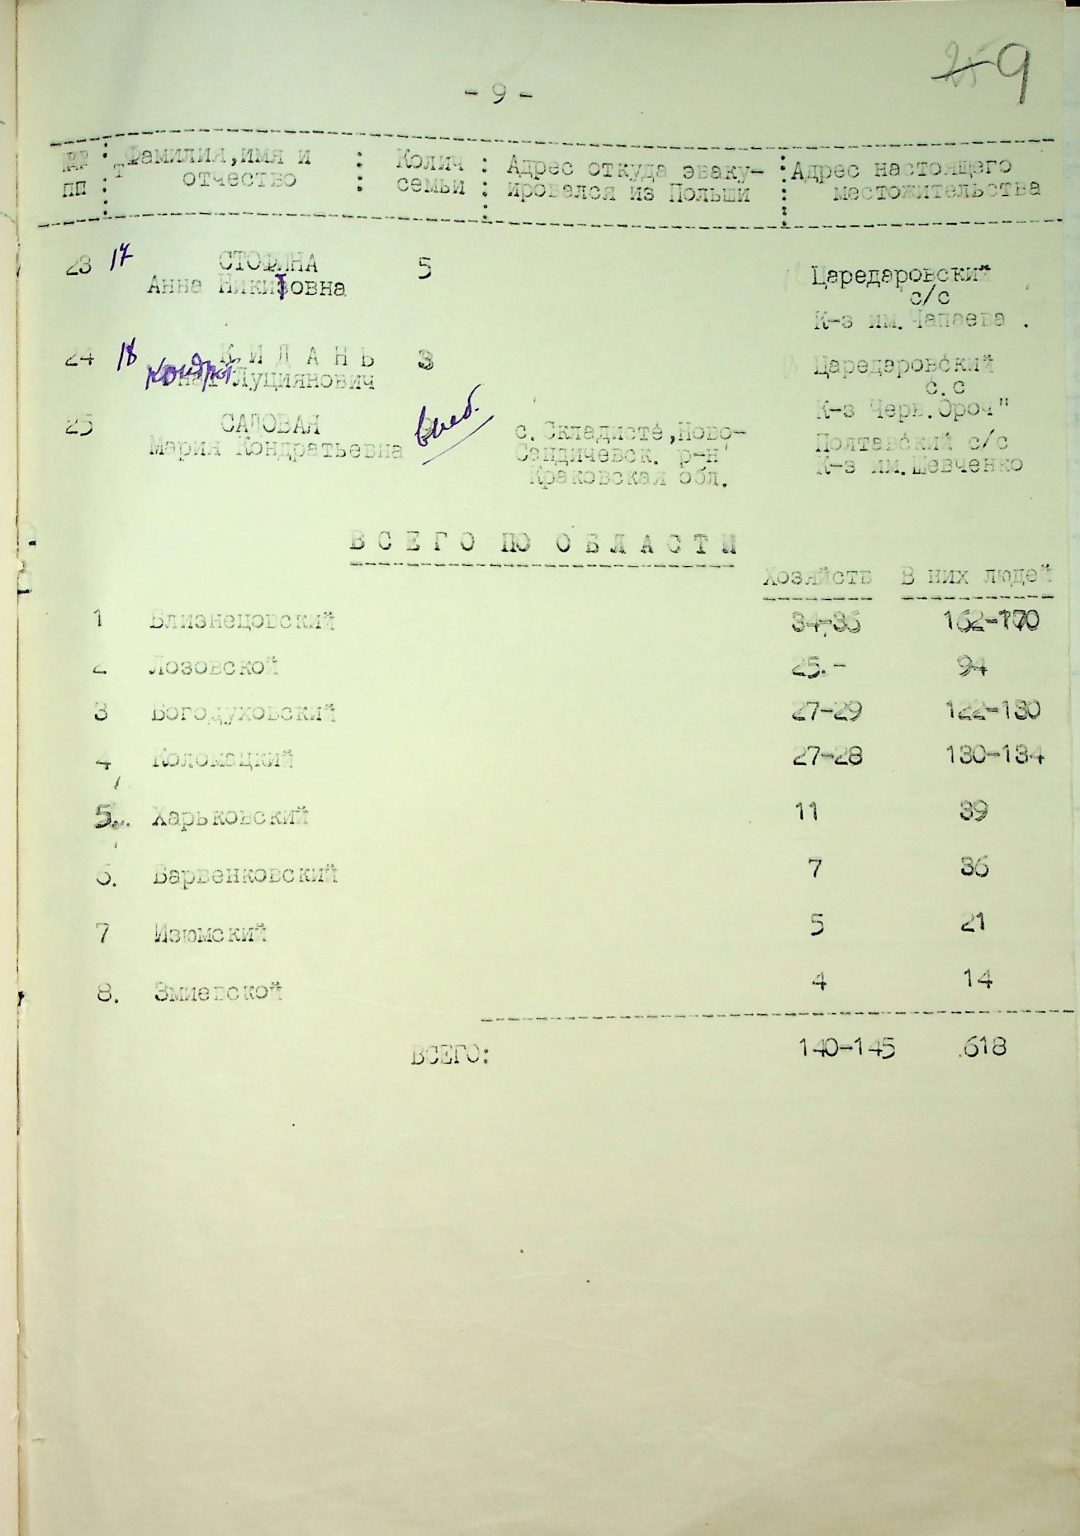 25 9
- 9 -
№№ : Фамилия,имя и : Колич : Адрес откуда эваку- : Адрес настоящего
пп : Т отчество : семьи : ировался из Польши : местожительства
23 17 СТОФИНА 5 Царедаровский
Анна Никитовна с/с
К-з им.Чапаева .
24 18 К И Д А Н Ь 3 Царедаровский
Кондрат Луциянович с.с
К-з Черв.Ороч"
25 САДОВАЯ с.Складисте,Ново- Полтавский с/с
Мария Кондратьевна Сандичевск. р-н К-з им.Шевченко
Краковская обл.
В С Е Г О ПО О Б Л А С Т И
Хозяйств В них людей
1 Близнецовский 34-36 162-170
2 Лозовской 25.- 94
3 Богодуховский 27-29 122-130
4 Коломацкий 27-28 130-134
5. Харьковский 11 39
6. Барвенковский 7 36
7 Изюмский 5 21
8. Змиевской 4 14
ВСЕГО: 140-145 618